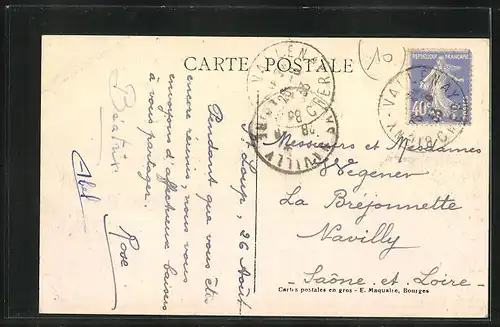 10
CARTE POSTALE
RÉPUBLIQUE FRANÇAISE
40c
St Loup, 26 Août
Pendant que vous êtes
encore réunis, nous vous
envoyons d'affectueux baisers
à vous partager.
Béatrix
Abel
Rose
Messieurs et Mesdames
Wegener
La Bréjonnette
Navilly
Saône-et-Loire
Cartes postales en gros - E. Maquaire, Bourges